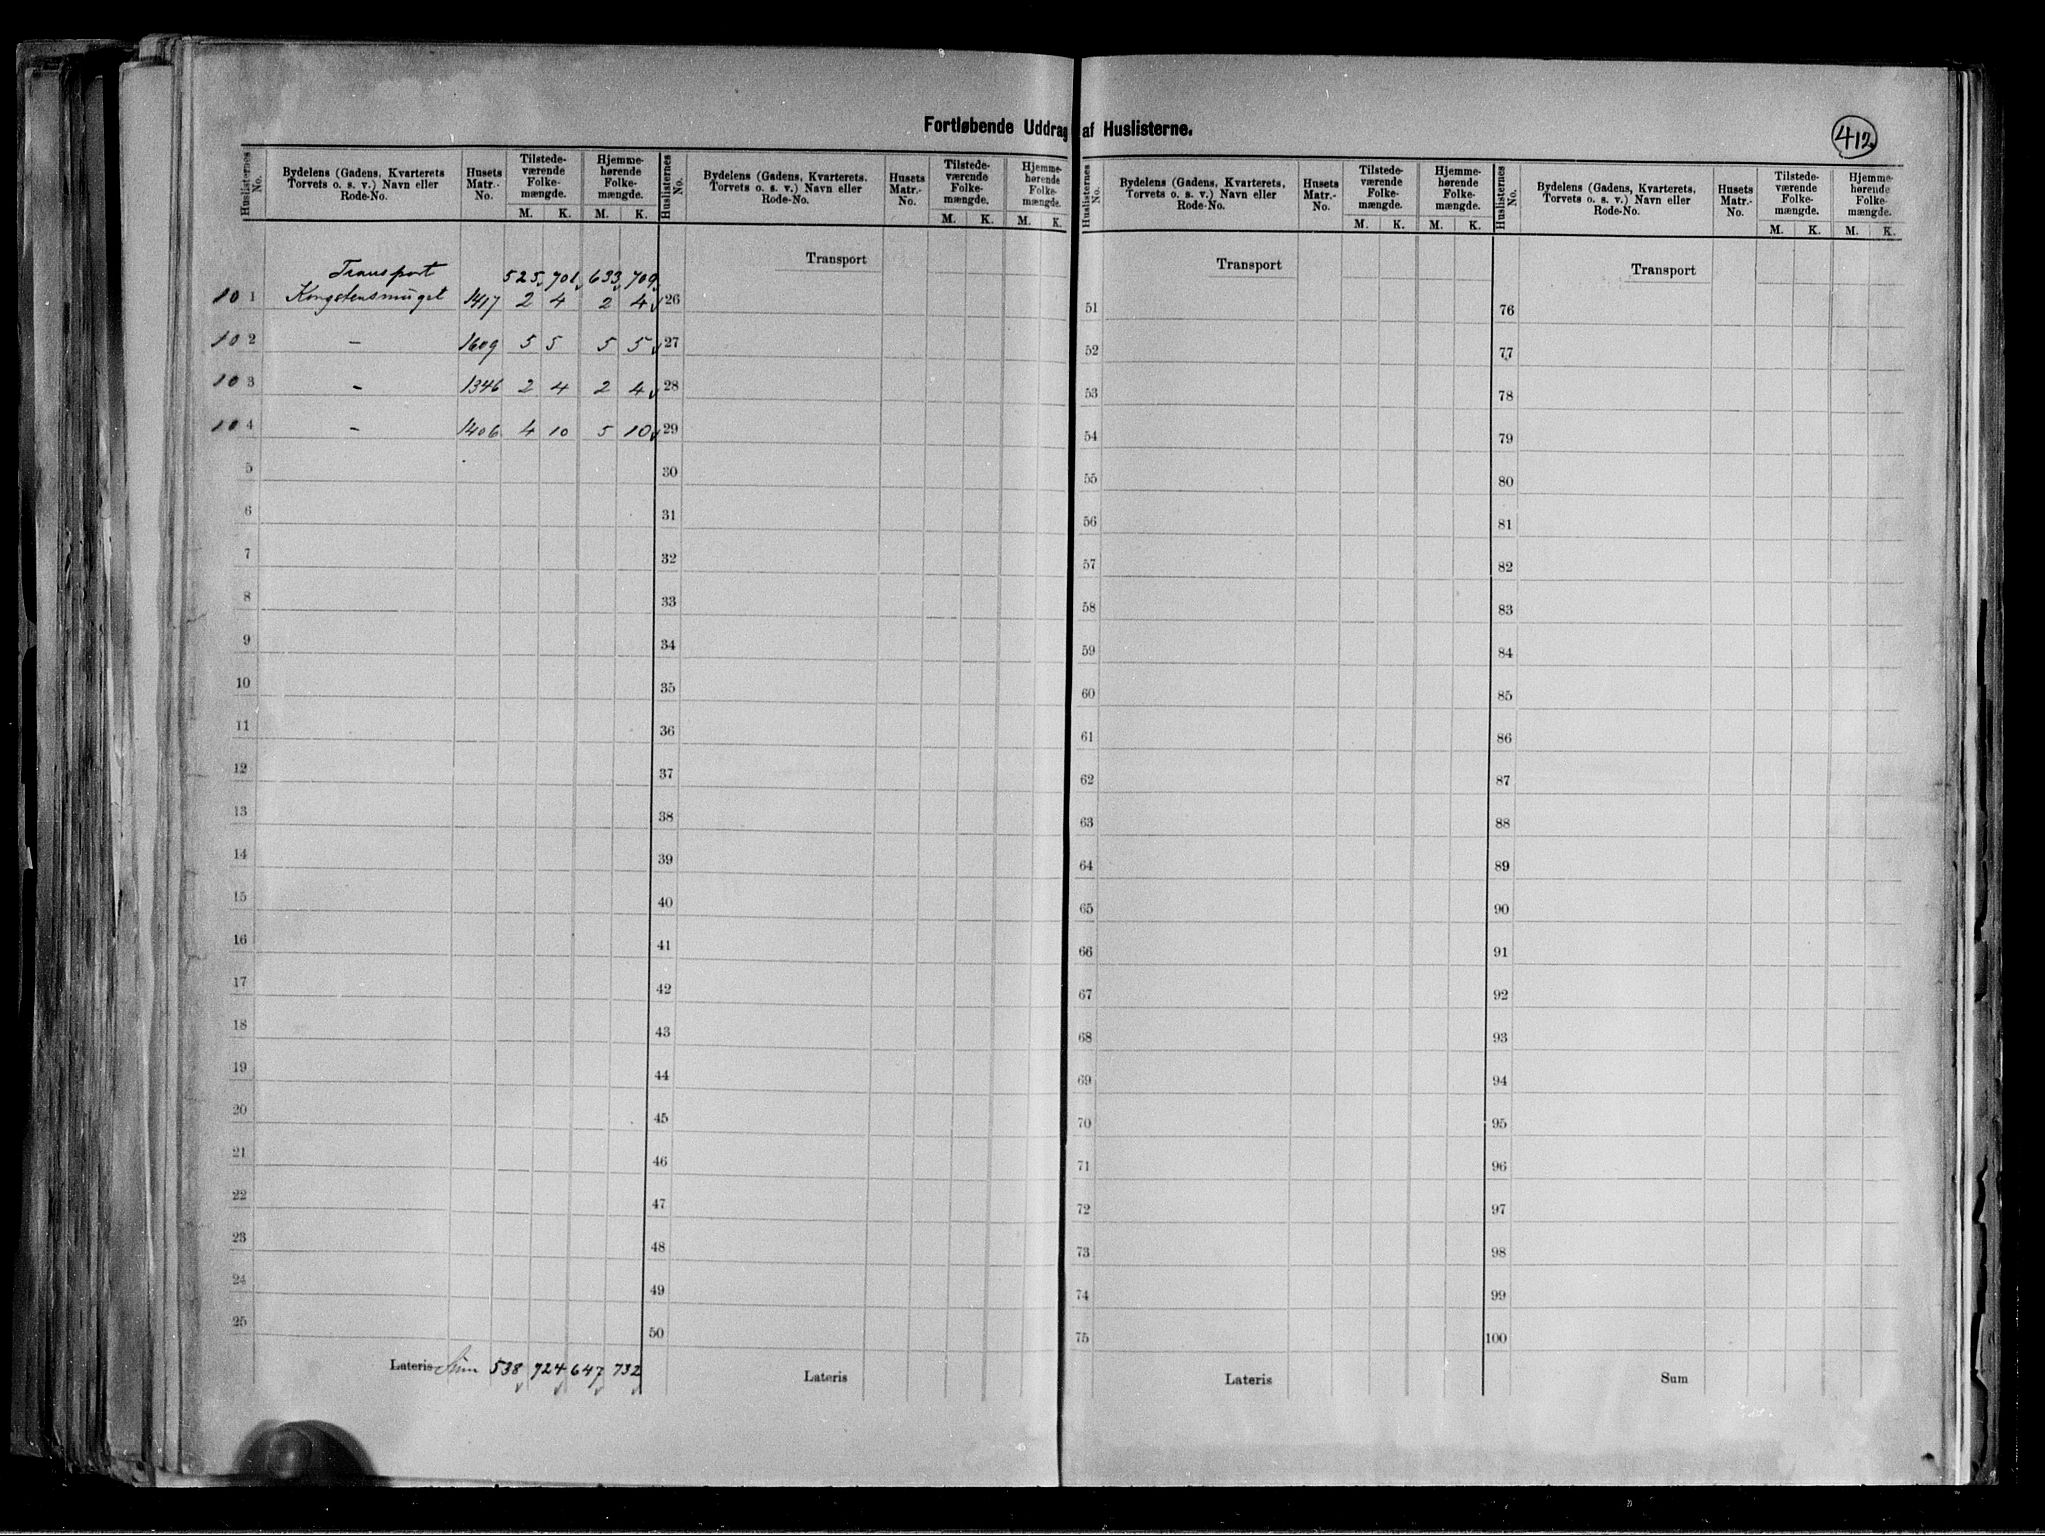 Fortløbende Uddrag af Huslisterne.
412.
Huslisternes No. | Bydelens (Gadens, Kvarterets Torvets o. s. v.) Navn eller Rode-No. | Husets Matr.-No. | Tilstede-værende Folke-mængde. M. K. | Hjemme-hørende Folke-mængde. M. K.
Huslisternes No. | Bydelens (Gadens, Kvarterets, Torvets o. s. v.) Navn eller Rode-No. | Husets Matr.-No. | Tilstede-værende Folke-mængde. M. K. | Hjemme-hørende Folke-mængde. M. K.
Huslisternes No. | Bydelens (Gadens, Kvarterets, Torvets o. s. v.) Navn eller Rode-No. | Husets Matr.-No. | Tilstede-værende Folke-mængde. M. K. | Hjemme-hørende Folke-mængde. M. K.
Huslisternes No. | Bydelens (Gadens, Kvarterets, Torvets o. s. v.) Navn eller Rode-No. | Husets Matr.-No. | Tilstede-værende Folke-mængde. M. K. | Hjemme-hørende Folke-mængde. M. K.
Transport 525 701 633 709
101 1417 2 4 2 4
102 - 1609 5 5 5 5
103 - 1346 2 4 2 4
104 - 1406 4 10 5 10
5
6
7
8
9
10
11
12
13
14
15
16
17
18
19
20
21
22
23
24
25
Lateris Sum 538 724 647 732
Transport
26
27
28
29
30
31
32
33
34
35
36
37
38
39
40
41
42
43
44
45
46
47
48
49
50
Lateris
Transport
51
52
53
54
55
56
57
58
59
60
61
62
63
64
65
66
67
68
69
70
71
72
73
74
75
Lateris
Transport
76
77
78
79
80
81
82
83
84
85
86
87
88
89
90
91
92
93
94
95
96
97
98
99
100
Sum